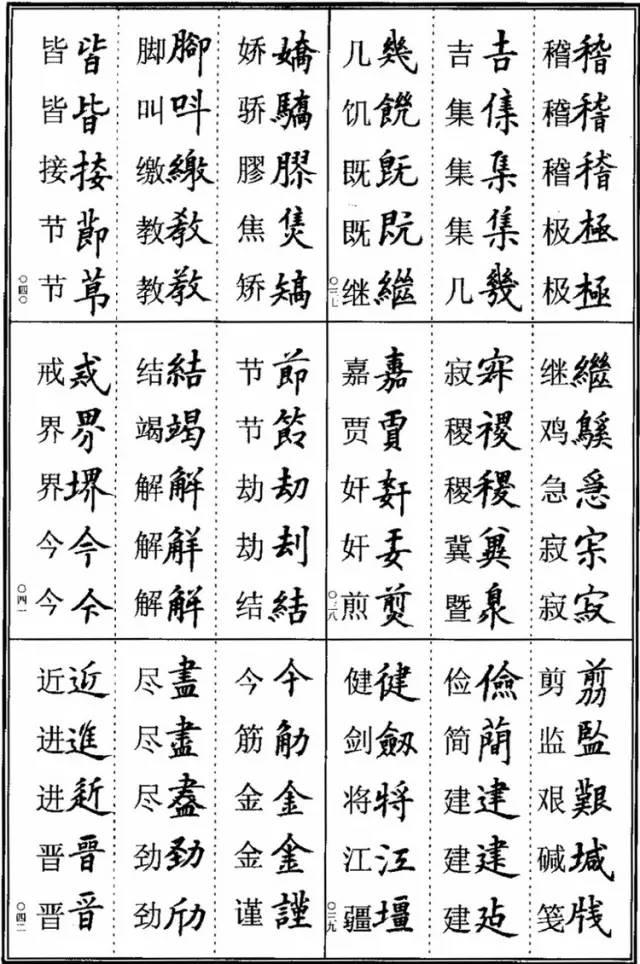 稽稽稽稽稽稽极極极極
吉吉集集集集集几幾
几幾饥饑既旣既既继繼
〇三七
继繼鸡鷄急急寂寂寂
寂稷禝稷稷冀暨臮
嘉嘉贾賈奸奸煎煎
〇三八
剪剪监監艰艱碱堿笺牋
俭儉简簡建建建建建
健健剑劔将將江江疆壃
〇三九
娇嬌骄驕膠膠焦焦矫矯
脚腳叫呌缴繳教教教教
皆皆皆皆接接节節节莭
〇四〇
节節节劫刧劫刦结結
结結竭竭解解解解解解
戒戒界界界堺今今今今
〇四一
今今筋觔金金金金谨謹
尽盡尽盡尽盡劲勁劲
近近进進进晋晉晋晋
〇四二